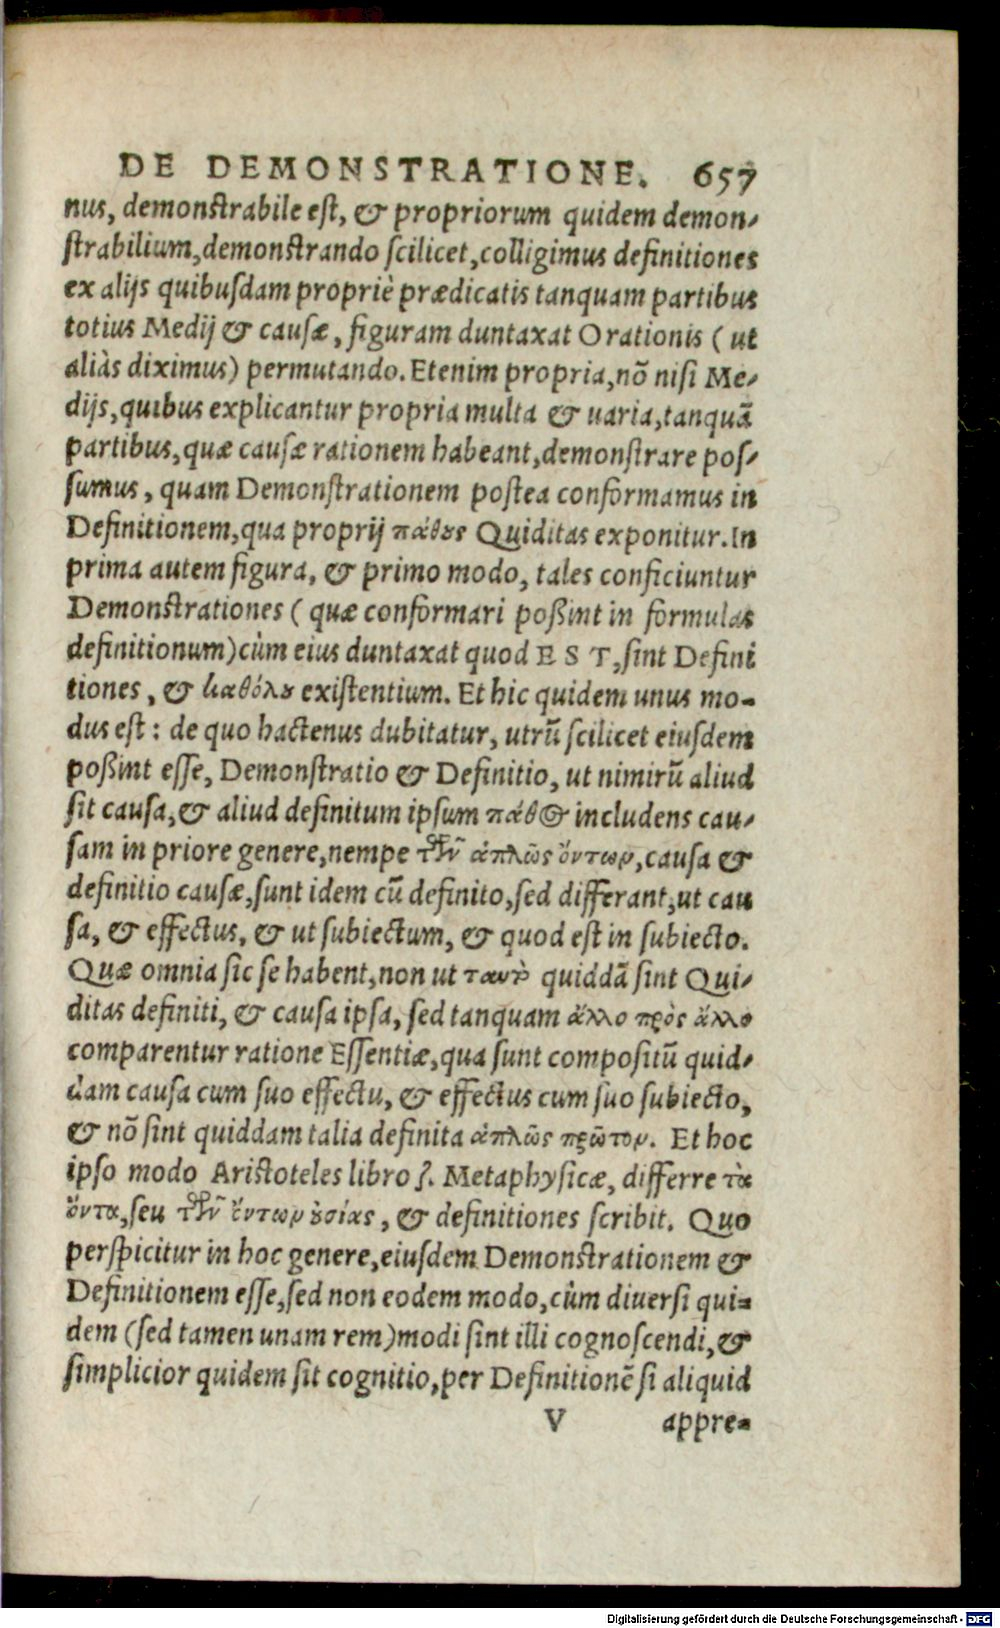 DE DEMONSTRATIONE. 657
nus, demonstrabile est, & propriorum quidem demon-
strabilium, demonstrando scilicet, colligimus definitiones
ex alijs quibusdam propriè prædicatis tanquam partibus
totius Medij & causæ, figuram duntaxat Orationis (ut
aliàs diximus) permutando. Etenim propria, nō nisi Me-
dijs, quibus explicantur propria multa & uaria, tanquā
partibus, quæ causæ rationem habeant, demonstrare pos-
sumus, quam Demonstrationem postea conformamus in
Definitionem, qua proprij πάθους Quiditas exponitur. In
prima autem figura, & primo modo, tales conficiuntur
Demonstrationes (quæ conformari poßint in formulas
definitionum) cùm eius duntaxat quod E S T, sint Defini
tiones, & καθόλου existentium. Et hic quidem unus mo-
dus est: de quo hactenus dubitatur, utrū scilicet eiusdem
poßint esse, Demonstratio & Definitio, ut nimirū aliud
sit causa, & aliud definitum ipsum πάθος includens cau-
sam in priore genere, nempe τῶν ἁπλῶς ὄντων, causa &
definitio causæ, sunt idem cū definito, sed differant, ut cau
sa, & effectus, & ut subiectum, & quod est in subiecto.
Quæ omnia sic se habent, non ut ταυτὸ quiddā sint Qui-
ditas definiti, & causa ipsa, sed tanquam ἄλλο πρὸς ἄλλο
comparentur ratione Essentiæ, qua sunt compositū quid-
dam causa cum suo effectu, & effectus cum suo subiecto,
& nō sint quiddam talia definita ἁπλῶς πρῶτον. Et hoc
ipso modo Aristoteles libro ζ. Metaphysicæ, differre τὰ
ὄντα, seu τῶν ὄντων οὐσίας, & definitiones scribit. Quo
perspicitur in hoc genere, eiusdem Demonstrationem &
Definitionem esse, sed non eodem modo, cùm diuersi qui-
dem (sed tamen unam rem) modi sint illi cognoscendi, &
simplicior quidem sit cognitio, per Definitionē si aliquid
V appre-
Digitalisierung gefördert durch die Deutsche Forschungsgemeinschaft - DFG